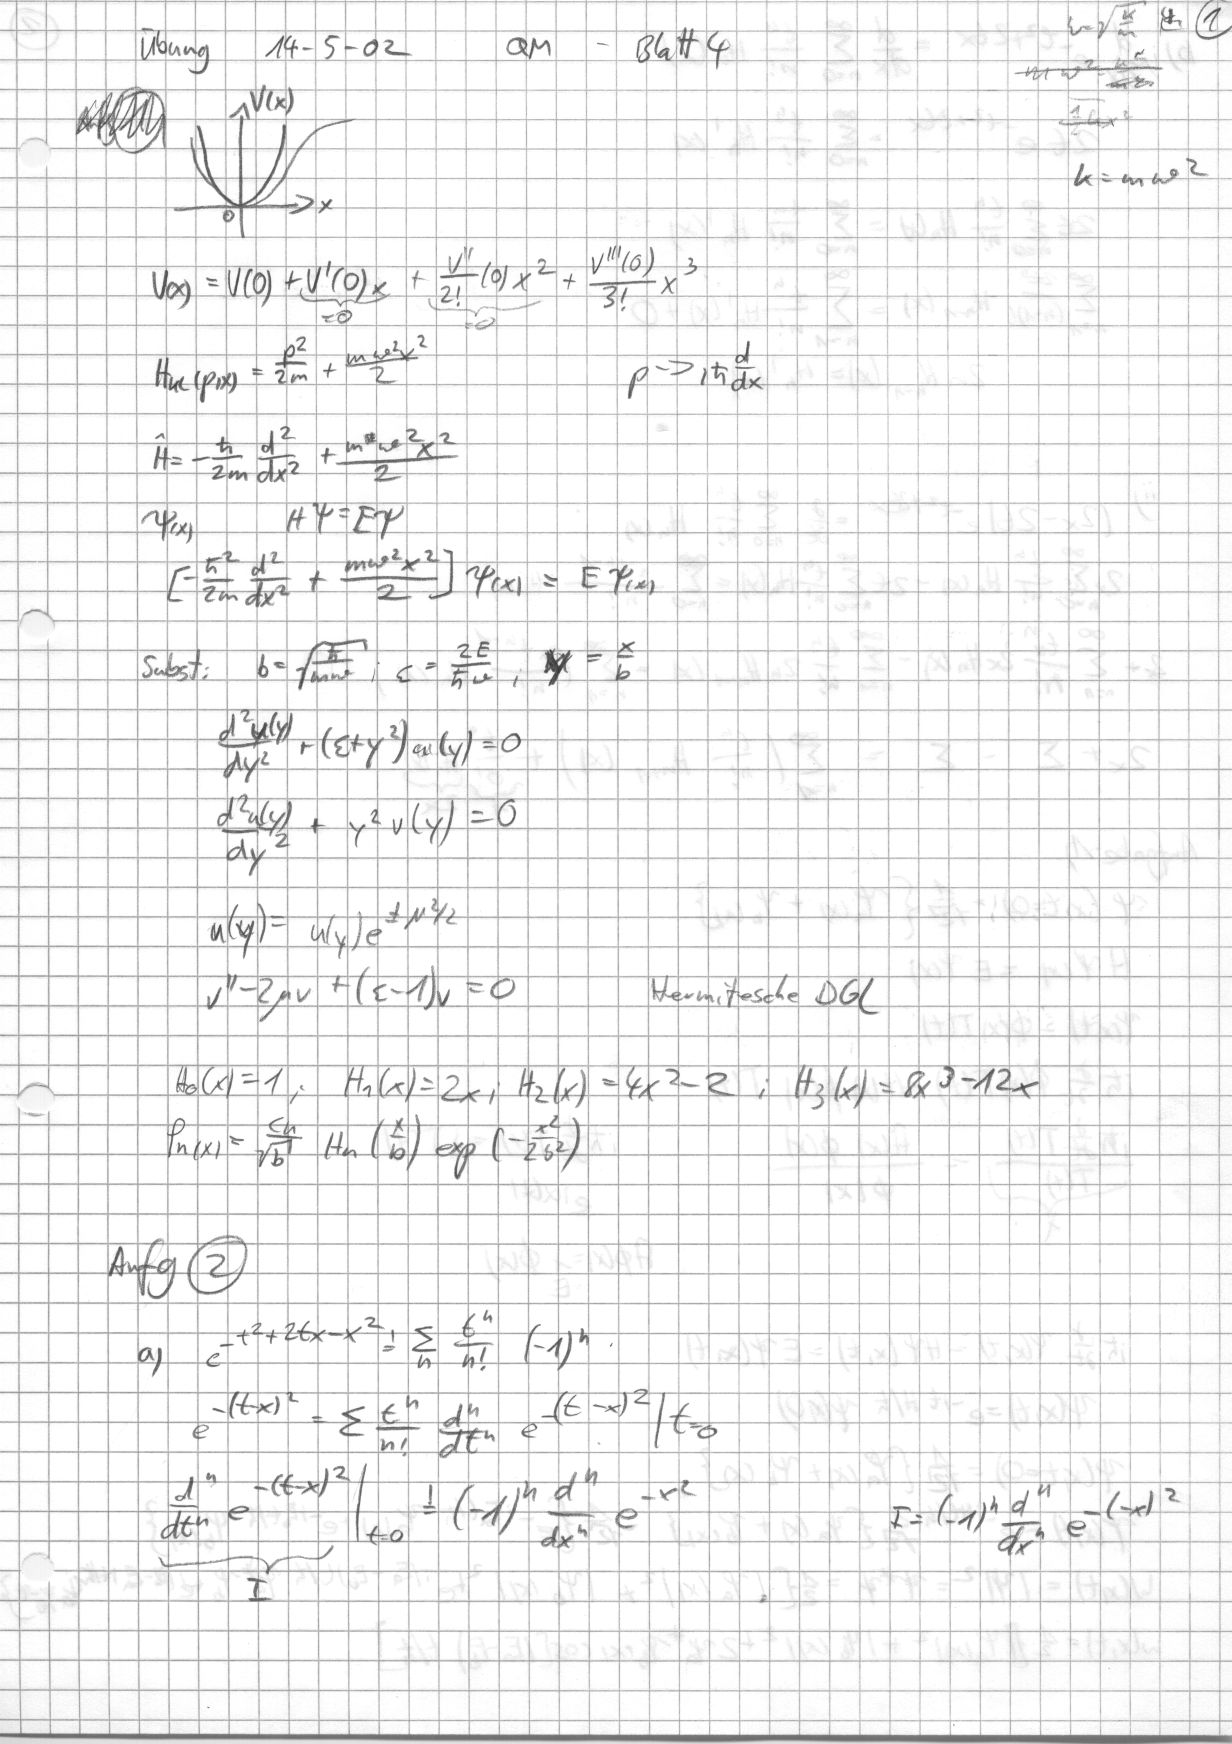 Übung 14-5-02 QM - Blatt 4 ①
k = mω²
V(x)
0 x
V(x) = V(0) + V'(0)x + V''/2! (0) x² + V'''(0)/3! x³
=0 =0
H_kl(p,x) = p²/2m + mω²x²/2 p → iħ d/dx
Ĥ = -ħ/2m d²/dx² + mω²x²/2
Ψ(x) HΨ = EΨ
[-ħ²/2m d²/dx² + mω²x²/2] Ψ(x) = E Ψ(x)
Subst: b = √(ħ/mω) ; ε = 2E/ħω ; y = x/b
d²u(y)/dy² + (ε+y²) u(y) = 0
d²u(y)/dy² + y² u(y) = 0
u(y) = u(y) e^(±μ²/2)
v'' - 2μv + (ε-1)v = 0 Hermitesche DGL
H₀(x) = 1 ; H₁(x) = 2x ; H₂(x) = 4x² - 2 ; H₃(x) = 8x³ - 12x
φn(x) = cn/√b Hn (x/b) exp (-x²/2b²)
Aufg ②
a) e^(-t²+2tx-x²) != Σn tⁿ/n! (-1)ⁿ
e^(-(t-x)²) = Σ tⁿ/n! dⁿ/dtⁿ e^(-(t-x)²) | t=0
dⁿ/dtⁿ e^(-(t-x)²) | t=0 != (-1)ⁿ dⁿ/dxⁿ e^(-x²) I = (-1)ⁿ dⁿ/dxⁿ e^(-(-x)²)
I